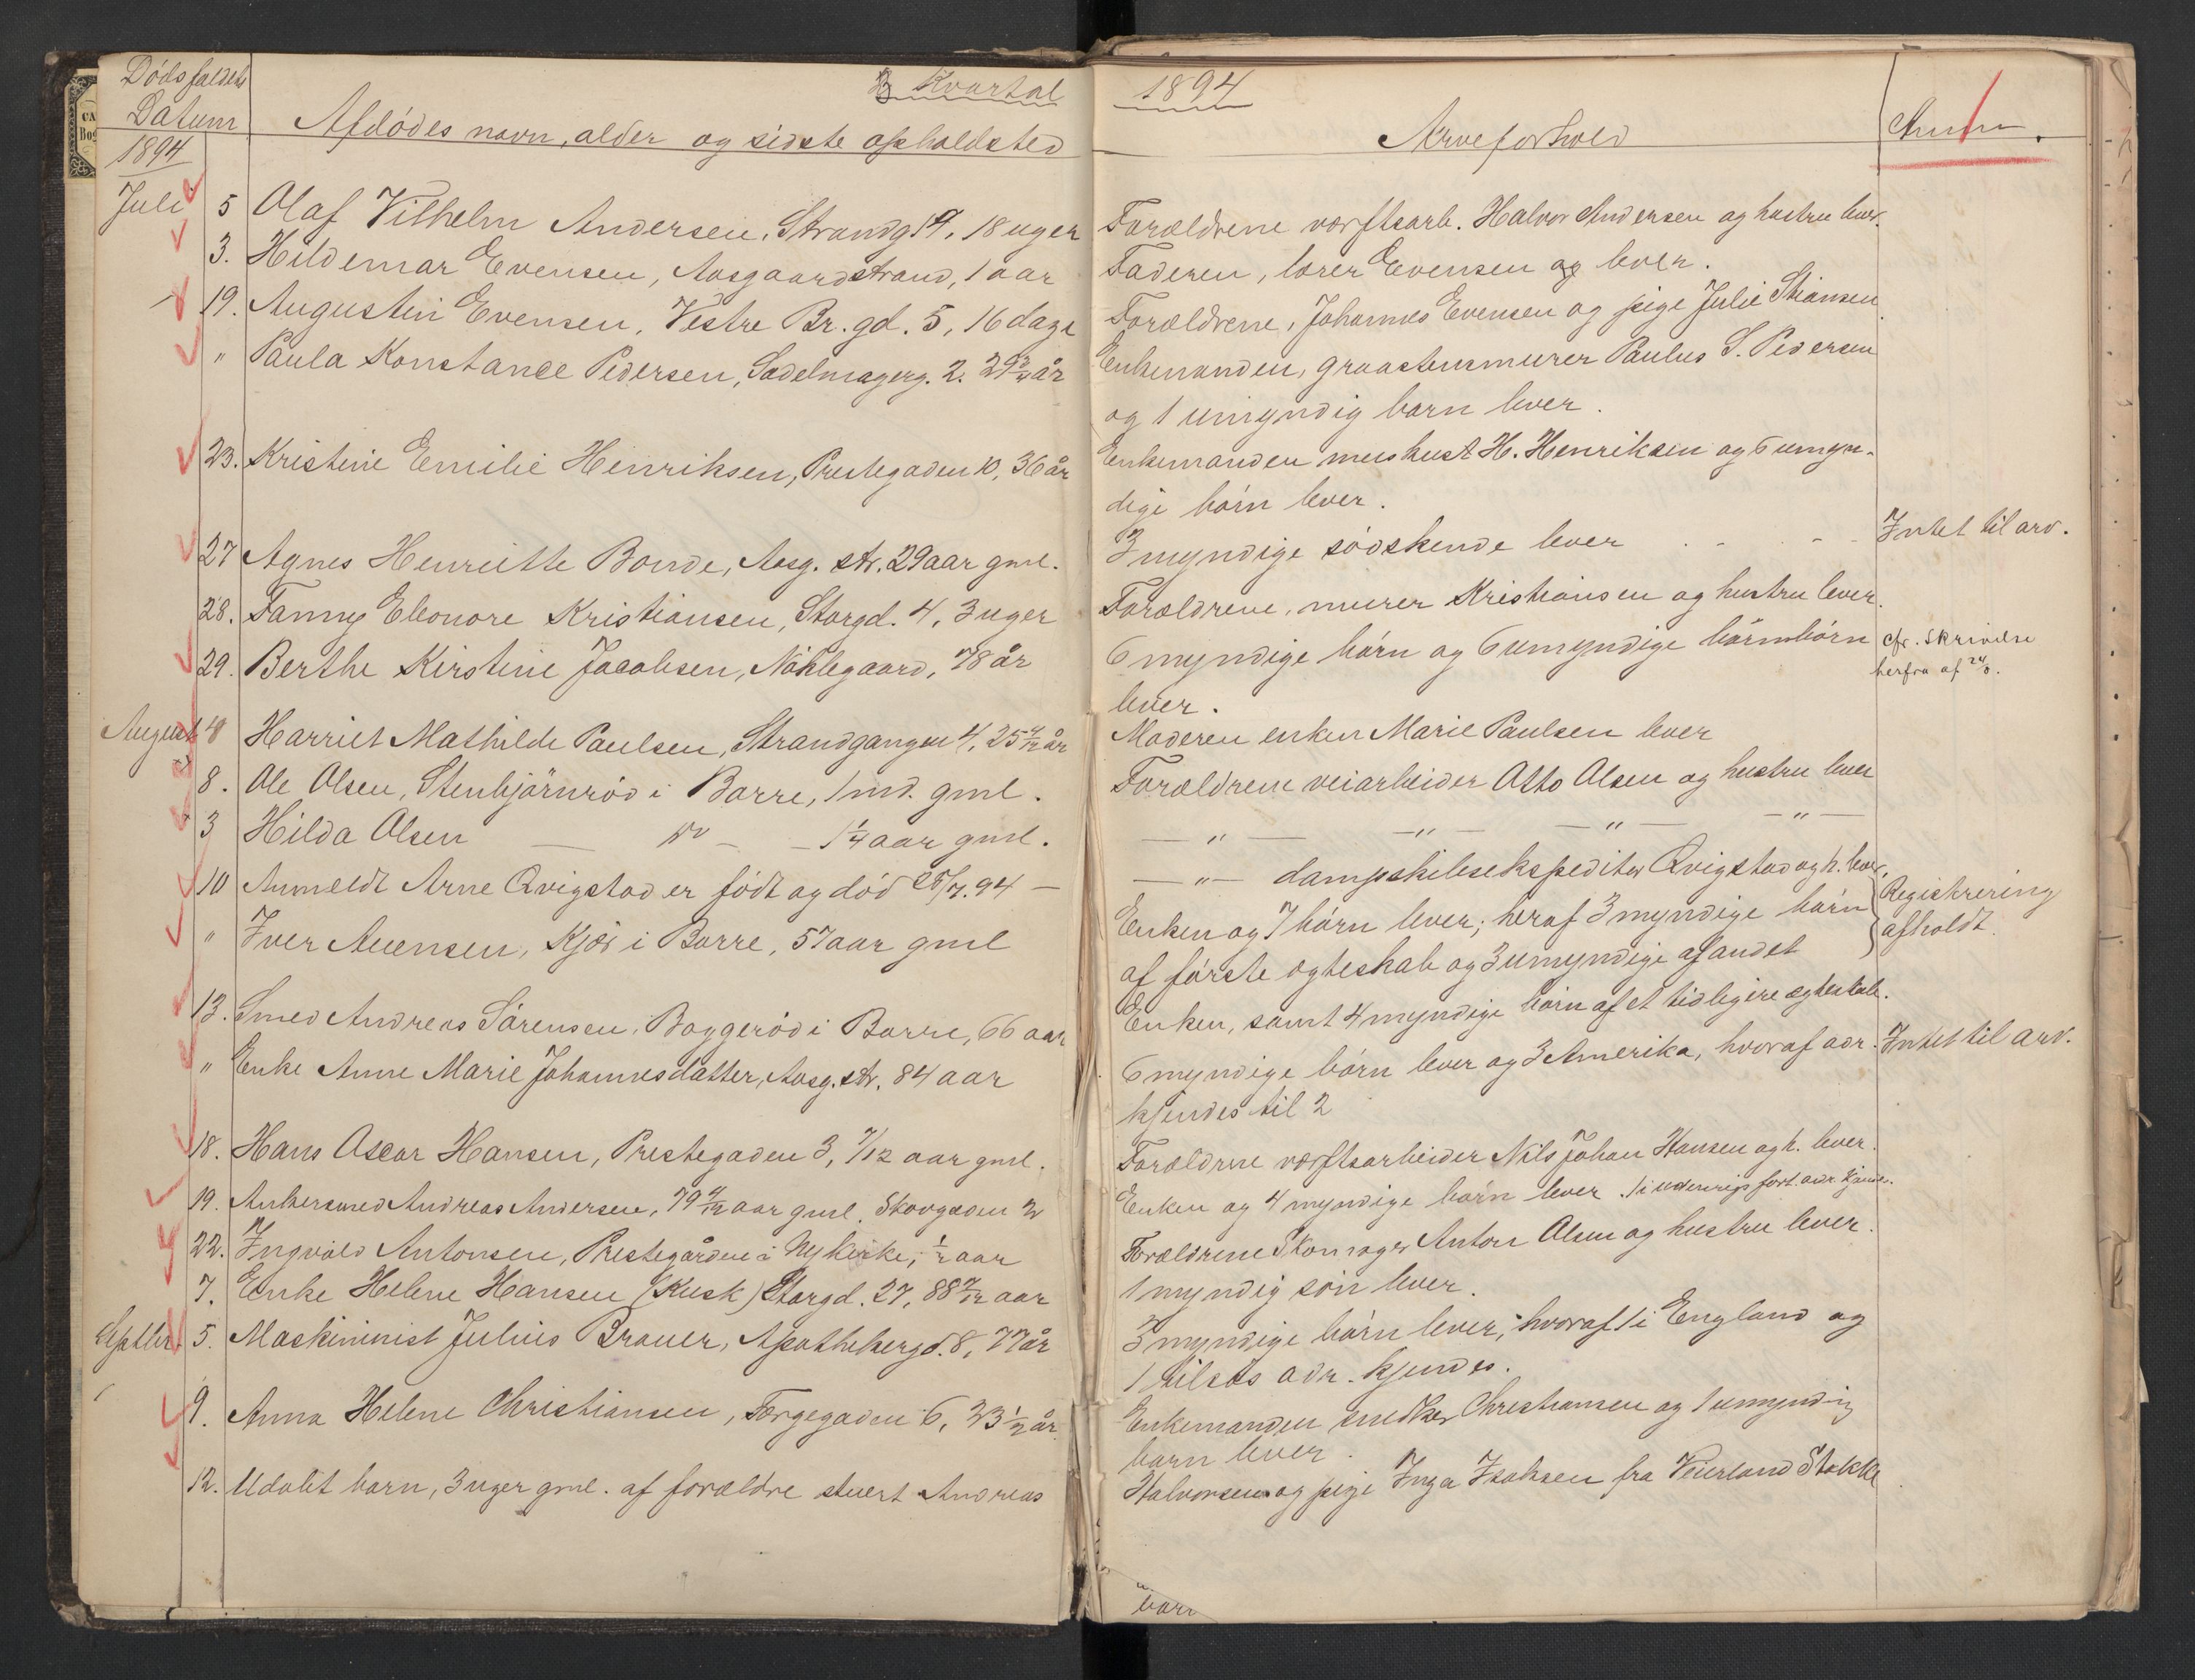 Dødsfaldets
Datum
1894
Afdødes navn, alder og sidste opholdsted
3 Kvartal
Juli 5 Olaf Vilhelm Andersen, Strandg 19, 18 uger
3. Hildemar Evensen, Aasgaardstrand, 1 aar
19. Augustin Evensen, Vestre Br. gd. 5, 16 dage
" Paula Konstance Pedersen, Sadelmagerg. 2. 29 år
23. Kristine Emilie Henriksen, Prestegaden 10, 36 år
27 Agnes Henriette Bonde, Aasg. str. 29 aar gml.
28. Fanny Eleonore Kristiansen, Storgd. 4, 3 uger
29. Berthe Kirstine Jacobsen, Nøklegaard, 78 år
August 4 Harriet Mathilde Paulsen, Strandgangen 4, 25 4/12 år
8. Ole Olsen, Stenbjørnrød i Borre, 1 md. gml.
3 Hilda Olsen — do — — 1 1/4 aar gml.
10 Anmeldt Arne Qvigstad er født og død 25/7. 94 —
" Iver Auensen, Kjær i Borre, 57 aar gml
13. Smed Andreas Sørensen, Boggerød i Borre, 66 aar
" Enke Anne Marie Johannesdatter, Aasg. str. 84 aar
18. Hans Oscar Hansen, Prestegaden 3, 7/12 aar gml.
19. Ankersmed Andreas Andersen, 79 4/12 aar gml. Skovgaden 2
22. Ingvald Antonsen, Prestegården i Nykirke, 1/2 aar
7. Enke Helene Hansen (Kusk) Storgd. 27, 88 7/12 aar
Septbr. 5. Maskininist Julius Brauer, Apothekergd. 8, 77 år
9. Anna Helene Christiansen, Færgegaden 6, 23 1/2 år
12. Udøbt barn, 3 uger gml. af forældre stuert Andreas
1894
Arveforhold
Anm.
Forældrene værftsarb. Halvor Andersen og hustru lever.
Faderen, lærer Evensen og lever.
Forældrene, Johannes Evensen og pige Julie Stiansen
Enkemanden, graastensmurer Paulus S. Pedersen
og 1 umyndig barn lever.
Enkemanden H. Henriksen og 6 umyn-
dige børn lever.
3 myndige sødskende lever . - . - - Intet til arv.
Forældrene, murer Kristiansen og hustru lever.
6 myndige børn og 6 umyndige børnebørn cfr. skrivelse
herfra af 24/8.
lever.
Moderen enken Marie Paulsen lever
Forældrene veiarbeider Otto Olsen og hustru lever
— " — — " — — " — — " —
— " — dampskibsekspeditør Qvigstad og h. lever.
Enken og 7 børn lever; heraf 3 myndige børn } Registrering
af første egteskab og 3 umyndige af andet afholdt.
Enken, samt 4 myndige børn af et tidligere ægteskab.
6 myndige børn lever og 3 Amerika, hvoraf adr. Intet til arv.
kjendes til 2
Forældrene værftsarbeider Nils Johan Hansen og h. lever.
Enken og 4 myndige børn lever. 1 i udenrigs fart. adr. kjendes.
Forældrene Skomager Anton Olsen og hustru lever.
1 myndig søn lever.
3 myndige børn lever, hvoraf 1 i England og
1 tilsøs adr. kjendes.
Enkemanden snedker Christiansen og 1 umyndig
barn lever.
Halvorsen og pige Inga Isaksen fra Veierland Stokke
barn